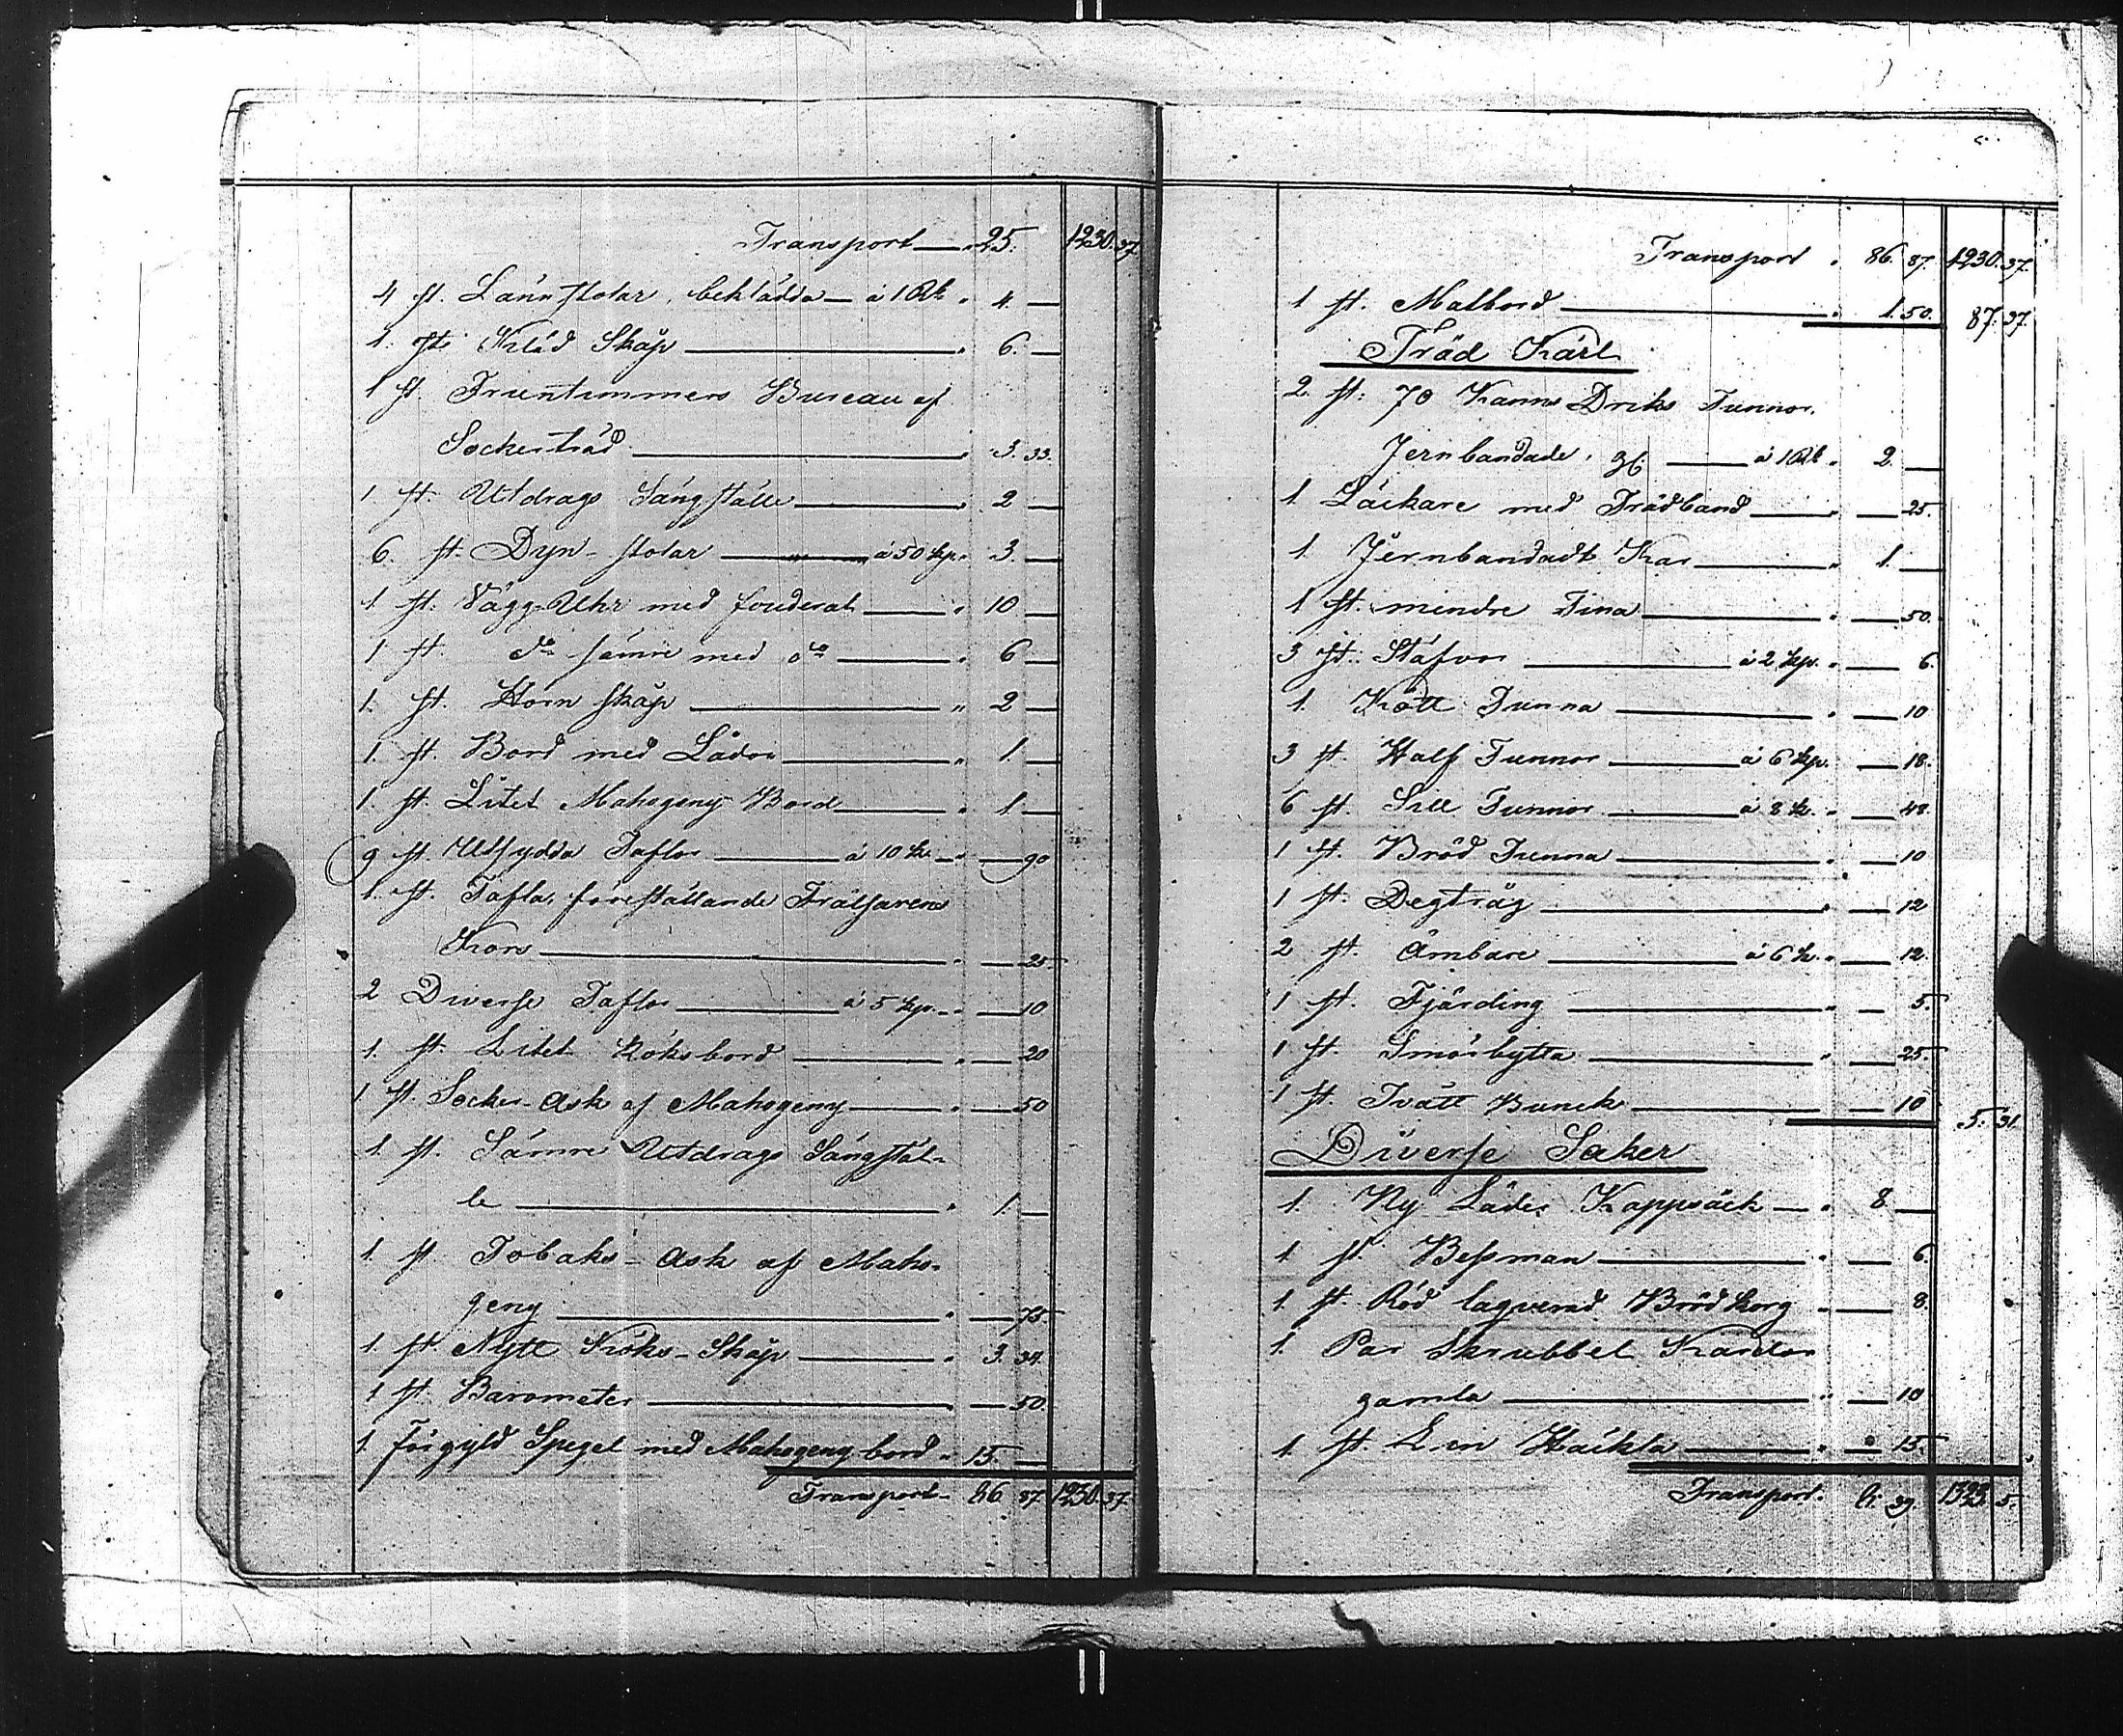 Transport — " 25. 1230. 37.
4 st. Länn stolar, beklädda — à 1 Rb. " 4. —
1. st. Kläd Skåp — " 6. —
1 st. Fruentimmers Bureau af
Sockerträd — " 3. 33.
1 st. Utdrags Sängställe — " 2 —
6. st. Dyn-stolar — à 50 kp. " 3. —
1 st. Vägg-Uhr med fouderal — " 10 —
1 st. do sämre med do — " 6 —
1. st. Hörn skåp — " 2 —
1. st. Bord med Lådor — " 1. —
1. st. Litet Mahogeny Bord — " 1 —
9 st. Utsydda Taflor — à 10 k. — " — 90
1. st. Tafla, föreställande Frälsarens
Kors — " — 25.
2 Diverse Taflor — à 5 kp. — " — 10
1. st. Litet Köksbord — " — 20
1 st. Socker-Ask af Mahogeny — " — 50
1. st. Sämre Utdrags Sängstäl-
le — " 1. —
1. st. Tobaks-Ask af Maho-
geny — " — 75.
1. st. Nytt Köks-Skåp — " 3. 34.
1 st. Barometer — " — 50.
1. Förgyld Spegel med Mahogeny bord " 15. —
Transport- 86 87 1230. 37.
Transport " 86 87. 1230. 37.
1 st. Matbord — " 1. 50. 87. 37.
Träd Kärl
2 st. 70 Kanns Driks Tunnor.
Jernbandade, — à 1 Rb. " 2. —
1 Läckare med Trädband — " — 25.
1. Jernbandadt Kar — " 1. —
1 st. mindre Tina — " — 50.
3 st. Stäfvor — à 2 kp. " — 6.
1. Kött Tunna — " — 10
3 st. Half Tunnor — à 6 kp. " — 18.
6 st. Sill Tunnor — à 8 k. " — 48.
1 st. Bröd Tunna — " — 10
1 st. Degtråg — " — 12
2 st. Ämbare — à 6 k. " — 12.
1 st. Fjärding — " — 5.
1 st. Smörbytta — " — 25.
1 st. Tvätt Bunck — " — 10 5. 31.
Diverse Saker
1. Ny Läder Kappsäck — " 8 —
1 st. Bessman — " — 6.
1. st. Röd lagverad Brödkorg " — 8.
1. Par Skrubbel Kardor
gamla — " — 10
1. st. Lin Häckla — " — 15.
Transport. 8. 39. 1323. 5.